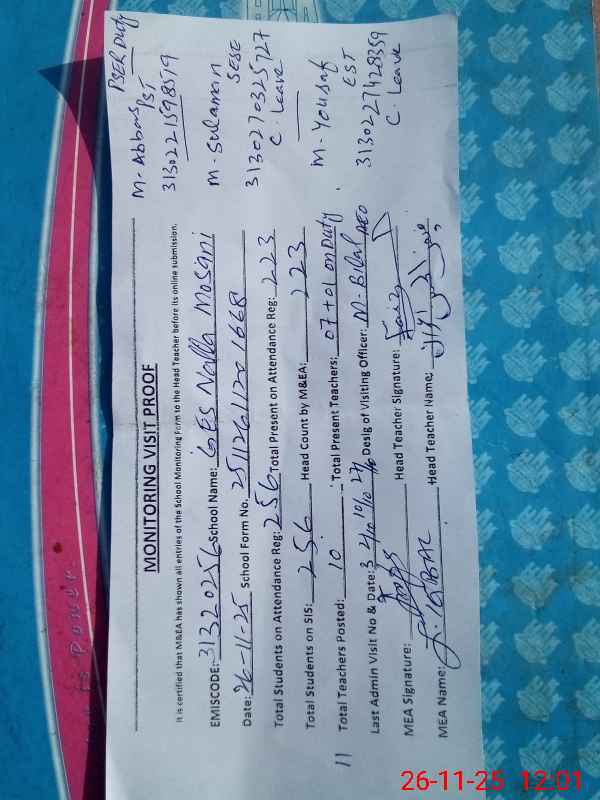 MONITORING VISIT PROOF
It is certified that M&EA has shown all entries of the School Monitoring Form to the Head Teacher before its online submission.
EMISCODE: 31320256 School Name: GES Nalla Mosani
Date: 26-11-25 School Form No. 25112611201668
Total Students on Attendance Reg: 256 Total Present on Attendance Reg: 223
Total Students on SIS: 256 Head Count by M&EA: 223
11 Total Teachers Posted: 10 Total Present Teachers: 07+01 on Duty
Last Admin Visit No & Date: 3 Desig of Visiting Officer: M. Bilal AEO
MEA Signature: Head Teacher Signature:
MEA Name: IQBAL Head Teacher Name:
PSER Duty
M. Abbas PST
3130221598579
M. Sulaman
SESE
3130270325727
C. Leave
M. Yousaf
EST
3130227428359
C. Leave
is Power.
26-11-25 12:01